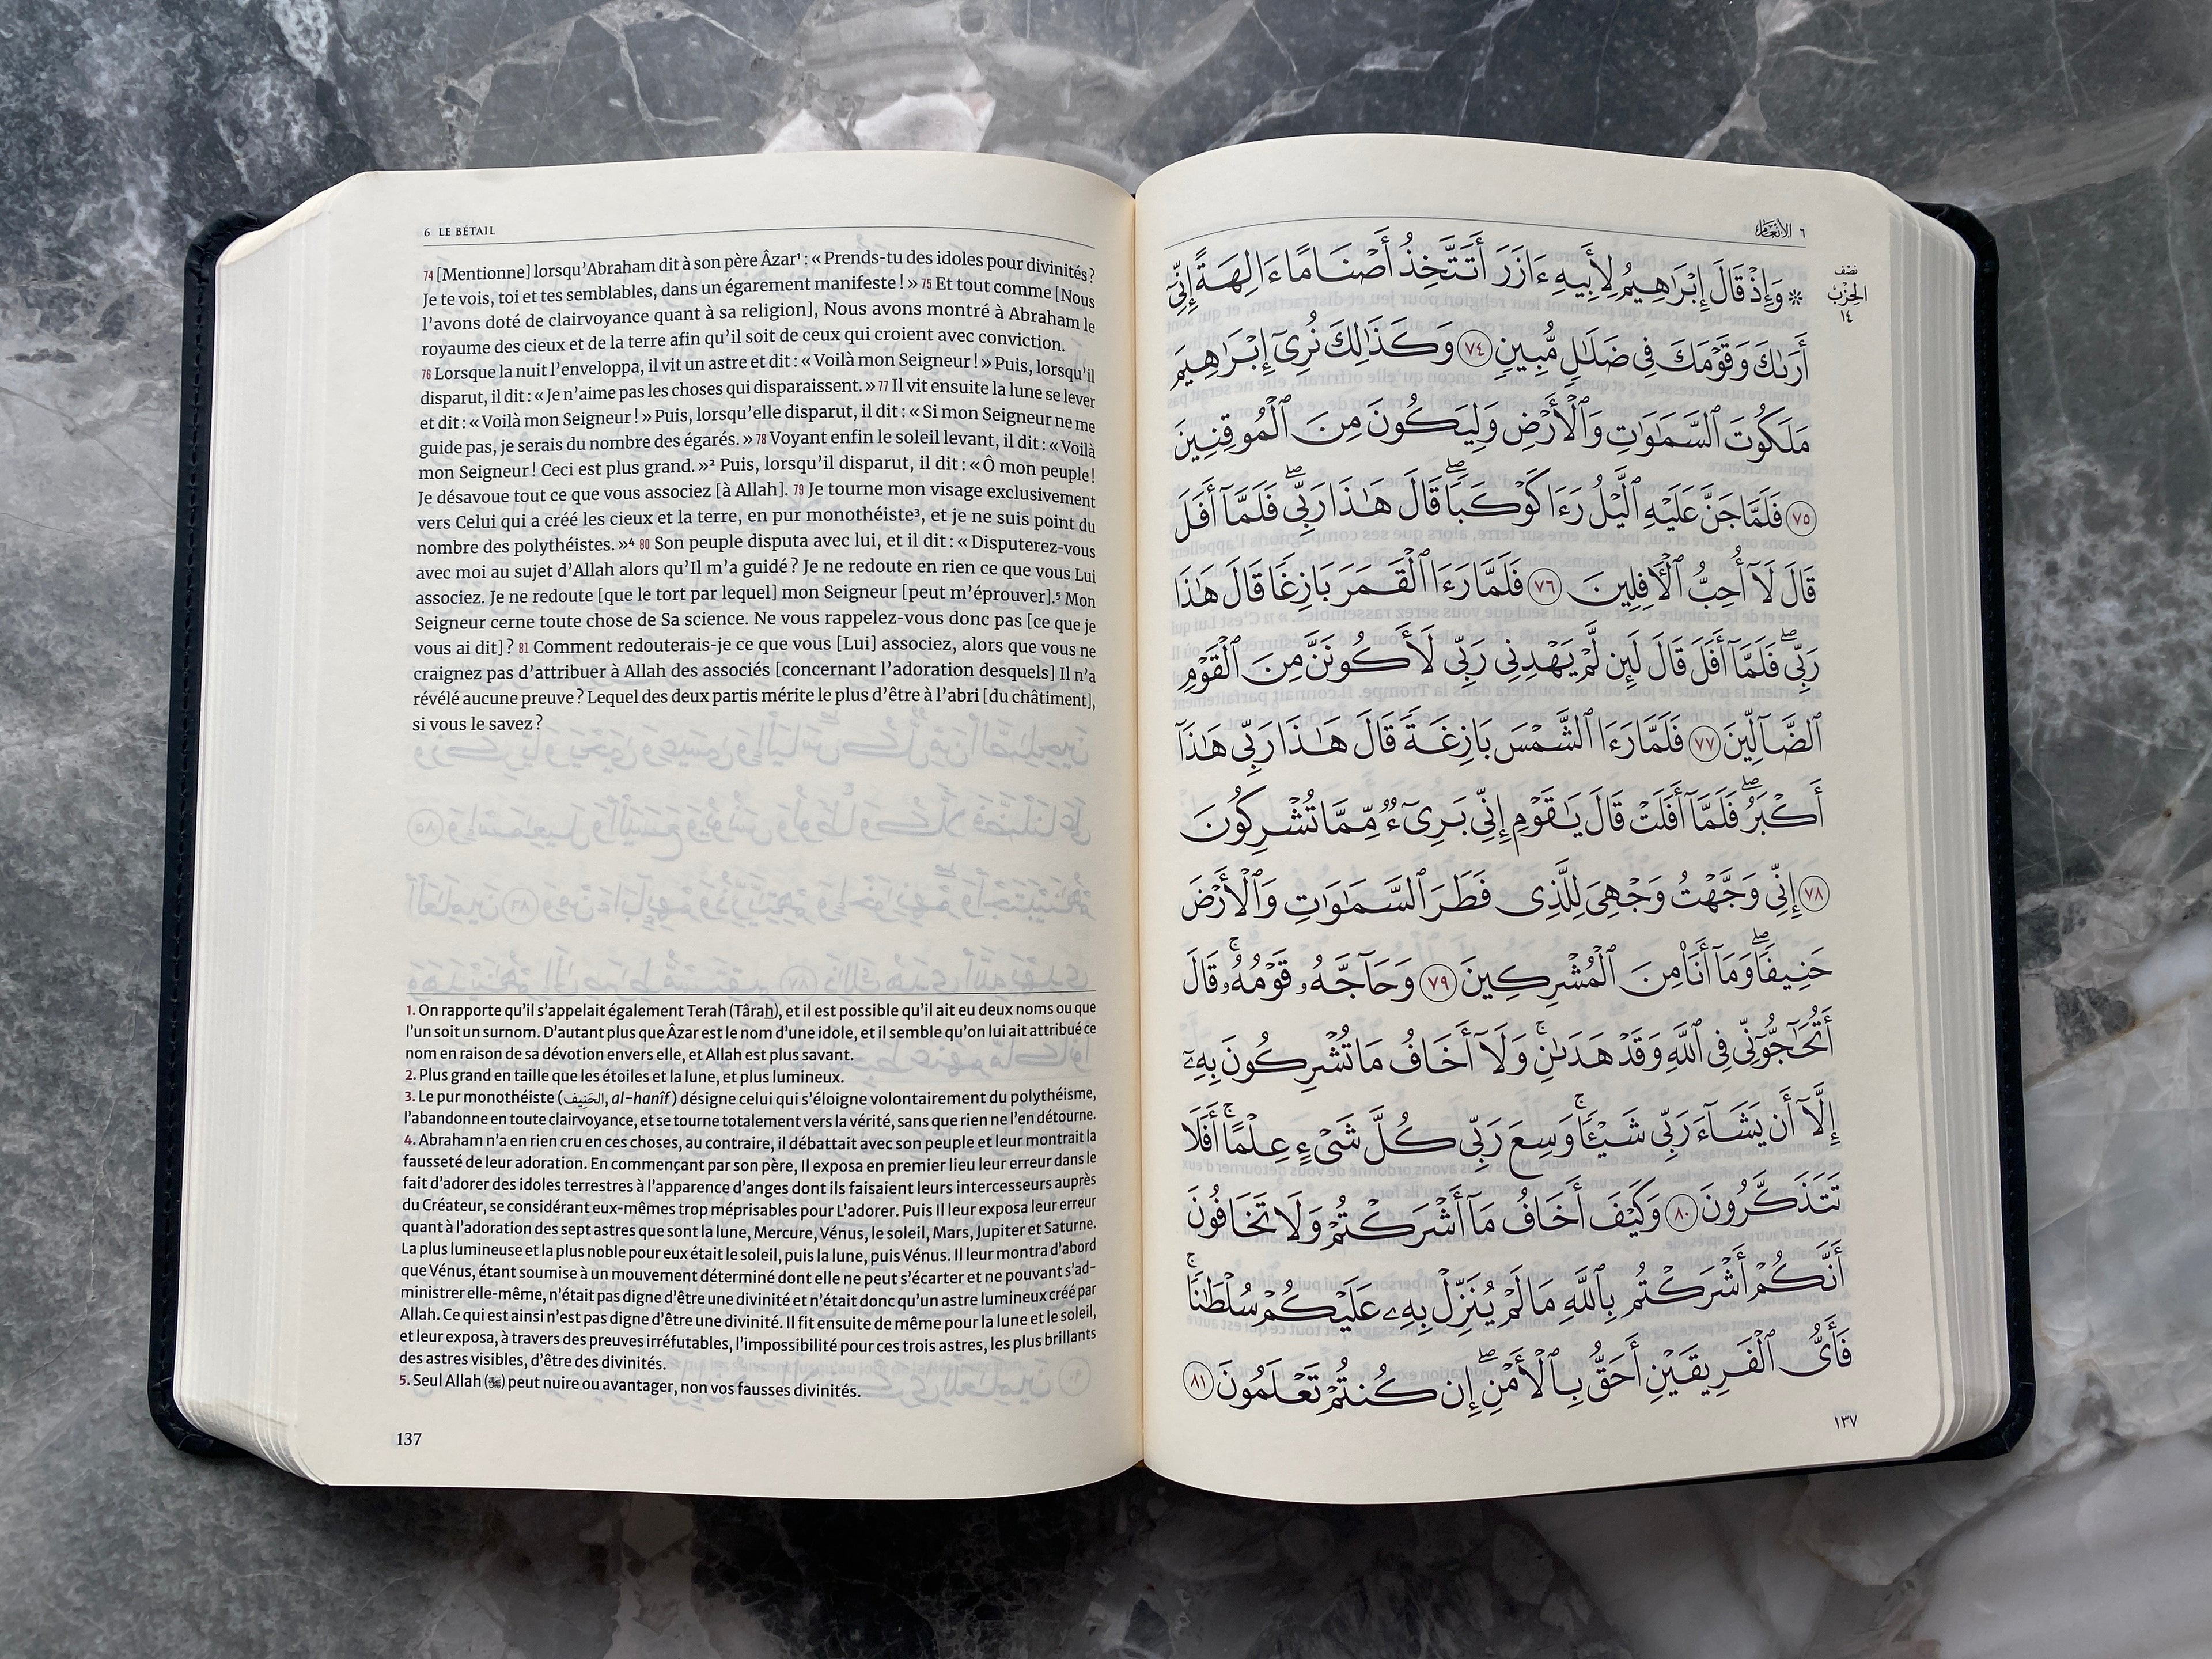 6 LE BÉTAIL
74 [Mentionne] lorsqu’Abraham dit à son père Âzar¹ : « Prends-tu des idoles pour divinités ?
Je te vois, toi et tes semblables, dans un égarement manifeste ! » 75 Et tout comme [Nous
l’avons doté de clairvoyance quant à sa religion], Nous avons montré à Abraham le
royaume des cieux et de la terre afin qu’il soit de ceux qui croient avec conviction.
76 Lorsque la nuit l’enveloppa, il vit un astre et dit : « Voilà mon Seigneur ! » Puis, lorsqu’il
disparut, il dit : « Je n’aime pas les choses qui disparaissent. » 77 Il vit ensuite la lune se lever
et dit : « Voilà mon Seigneur ! » Puis, lorsqu’elle disparut, il dit : « Si mon Seigneur ne me
guide pas, je serais du nombre des égarés. » 78 Voyant enfin le soleil levant, il dit : « Voilà
mon Seigneur ! Ceci est plus grand. »² Puis, lorsqu’il disparut, il dit : « Ô mon peuple !
Je désavoue tout ce que vous associez [à Allah]. 79 Je tourne mon visage exclusivement
vers Celui qui a créé les cieux et la terre, en pur monothéiste³, et je ne suis point du
nombre des polythéistes. »⁴ 80 Son peuple disputa avec lui, et il dit : « Disputerez-vous
avec moi au sujet d’Allah alors qu’Il m’a guidé ? Je ne redoute en rien ce que vous Lui
associez. Je ne redoute [que le tort par lequel] mon Seigneur [peut m’éprouver].⁵ Mon
Seigneur cerne toute chose de Sa science. Ne vous rappelez-vous donc pas [ce que je
vous ai dit] ? 81 Comment redouterais-je ce que vous [Lui] associez, alors que vous ne
craignez pas d’attribuer à Allah des associés [concernant l’adoration desquels] Il n’a
révélé aucune preuve ? Lequel des deux partis mérite le plus d’être à l’abri [du châtiment],
si vous le savez ?
1. On rapporte qu’il s’appelait également Terah (Târah), et il est possible qu’il ait eu deux noms ou que
l’un soit un surnom. D’autant plus que Âzar est le nom d’une idole, et il semble qu’on lui ait attribué ce
nom en raison de sa dévotion envers elle, et Allah est plus savant.
2. Plus grand en taille que les étoiles et la lune, et plus lumineux.
3. Le pur monothéiste (الحَنِيف, al-hanîf) désigne celui qui s’éloigne volontairement du polythéisme,
l’abandonne en toute clairvoyance, et se tourne totalement vers la vérité, sans que rien ne l’en détourne.
4. Abraham n’a en rien cru en ces choses, au contraire, il débattait avec son peuple et leur montrait la
fausseté de leur adoration. En commençant par son père, Il exposa en premier lieu leur erreur dans le
fait d’adorer des idoles terrestres à l’apparence d’anges dont ils faisaient leurs intercesseurs auprès
du Créateur, se considérant eux-mêmes trop méprisables pour L’adorer. Puis Il leur exposa leur erreur
quant à l’adoration des sept astres que sont la lune, Mercure, Vénus, le soleil, Mars, Jupiter et Saturne.
La plus lumineuse et la plus noble pour eux était le soleil, puis la lune, puis Vénus. Il leur montra d’abord
que Vénus, étant soumise à un mouvement déterminé dont elle ne peut s’écarter et ne pouvant s’ad-
ministrer elle-même, n’était pas digne d’être une divinité et n’était donc qu’un astre lumineux créé par
Allah. Ce qui est ainsi n’est pas digne d’être une divinité. Il fit ensuite de même pour la lune et le soleil,
et leur exposa, à travers des preuves irréfutables, l’impossibilité pour ces trois astres, les plus brillants
des astres visibles, d’être des divinités.
5. Seul Allah (ﷻ) peut nuire ou avantager, non vos fausses divinités.
137
٦ الأنعام
نصف
الحزب
١٤
۞ وَإِذۡ قَالَ إِبۡرَٰهِيمُ لِأَبِيهِ ءَازَرَ أَتَتَّخِذُ أَصۡنَامًا ءَالِهَةً إِنِّيٓ
أَرَىٰكَ وَقَوۡمَكَ فِي ضَلَٰلٖ مُّبِينٖ ٧٤ وَكَذَٰلِكَ نُرِيٓ إِبۡرَٰهِيمَ
مَلَكُوتَ ٱلسَّمَٰوَٰتِ وَٱلۡأَرۡضِ وَلِيَكُونَ مِنَ ٱلۡمُوقِنِينَ
٧٥ فَلَمَّا جَنَّ عَلَيۡهِ ٱلَّيۡلُ رَءَا كَوۡكَبٗاۖ قَالَ هَٰذَا رَبِّيۖ فَلَمَّآ أَفَلَ
قَالَ لَآ أُحِبُّ ٱلۡأٓفِلِينَ ٧٦ فَلَمَّا رَءَا ٱلۡقَمَرَ بَازِغٗا قَالَ هَٰذَا
رَبِّيۖ فَلَمَّآ أَفَلَ قَالَ لَئِن لَّمۡ يَهۡدِنِي رَبِّي لَأَكُونَنَّ مِنَ ٱلۡقَوۡمِ
ٱلضَّآلِّينَ ٧٧ فَلَمَّا رَءَا ٱلشَّمۡسَ بَازِغَةٗ قَالَ هَٰذَا رَبِّي هَٰذَآ
أَكۡبَرُۖ فَلَمَّآ أَفَلَتۡ قَالَ يَٰقَوۡمِ إِنِّي بَرِيٓءٞ مِّمَّا تُشۡرِكُونَ
٧٨ إِنِّي وَجَّهۡتُ وَجۡهِيَ لِلَّذِي فَطَرَ ٱلسَّمَٰوَٰتِ وَٱلۡأَرۡضَ
حَنِيفٗاۖ وَمَآ أَنَا۠ مِنَ ٱلۡمُشۡرِكِينَ ٧٩ وَحَآجَّهُۥ قَوۡمُهُۥۚ قَالَ
أَتُحَٰٓجُّوٓنِّي فِي ٱللَّهِ وَقَدۡ هَدَىٰنِۚ وَلَآ أَخَافُ مَا تُشۡرِكُونَ بِهِۦٓ
إِلَّآ أَن يَشَآءَ رَبِّي شَيۡـٔٗاۚ وَسِعَ رَبِّي كُلَّ شَيۡءٍ عِلۡمًاۚ أَفَلَا
تَتَذَكَّرُونَ ٨٠ وَكَيۡفَ أَخَافُ مَآ أَشۡرَكۡتُمۡ وَلَا تَخَافُونَ
أَنَّكُمۡ أَشۡرَكۡتُم بِٱللَّهِ مَا لَمۡ يُنَزِّلۡ بِهِۦ عَلَيۡكُمۡ سُلۡطَٰنٗاۚ
فَأَيُّ ٱلۡفَرِيقَيۡنِ أَحَقُّ بِٱلۡأَمۡنِۖ إِن كُنتُمۡ تَعۡلَمُونَ ٨١
١٣٧